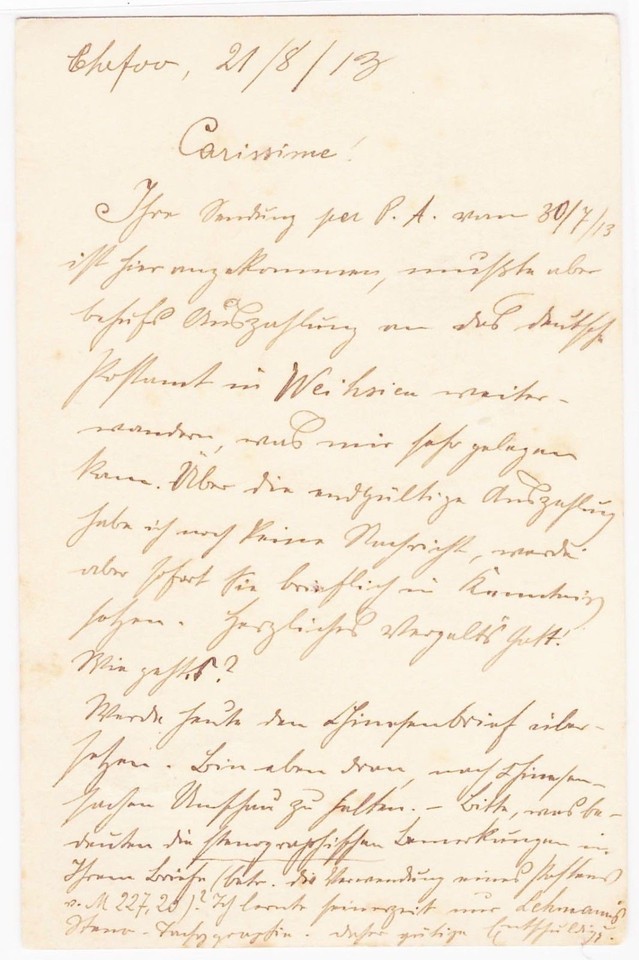 Chefoo, 21/8/13
Carissime!
Ihre Sendung per P. A. vom 30/7/13
ist hier angekommen, mußte aber
behufs Auszahlung an das deutsche
Postamt in Weihsien weiter-
wandern, was mir sehr gelegen
kam. Über die endgültige Auszahlung
habe ich noch keine Nachricht, werde
aber sofort Sie brieflich in Kenntnis
setzen. Herzliches Vergelts Gott!
Wie geht's?
Werde heute den Chinesenbrief über-
setzen. Bin eben dran, nach Chinesen-
sachen Umschau zu halten. – Bitte, was be-
deuten die stenographischen Bemerkungen in
Ihrem Briefe (betr. die Verwendung eines Postens
v. M 227,20)? Ich lernte seinerzeit nur Lehmann's
Steno-Tachygraphie. daher gütige Entschuldig.